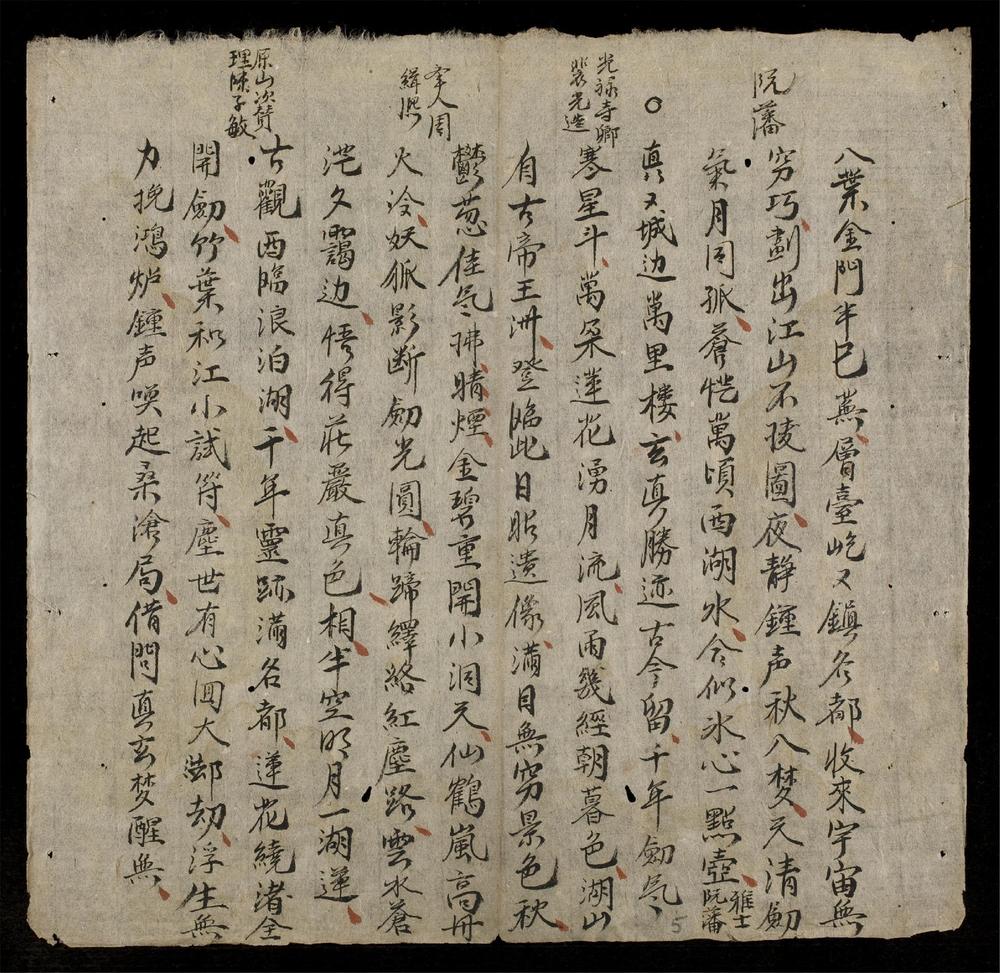 八葉金門半已蕪層臺屹又鎮名都收來宇宙無
阮藩
窮巧劃出江山不陵圖夜静鍾声秋入梦天清劍
氣月同孤蒼恍萬頃西湖水今似氷心一點壺
雅士
阮藩
○
真又城边萬里樓玄真勝迹古今留千年劍气
光禄寺卿
裴光造
寒星斗萬朶蓮花湧月流風雨幾經朝暮色湖山
自古帝王洲登臨此日貽遺像滿目無窮景色秋
鬱葱佳气拂晴煙金碧重開小洞天仙鶴嵐高丹
举人周
緝熙
火冷妖狐影断劍光圓輪蹄繹絡紅塵路雲水蒼
茫夕靄边悟得莊嚴真色相半空明月一湖蓮
原山次賛
理陳子敏
古觀西臨浪泊湖千年靈跡滿名都蓮花繞渚全
開劍竹葉和江小試符塵世有心回大劫浮生無
力挽鴻炉鍾声喚起桑滄局借問真玄梦醒無
5